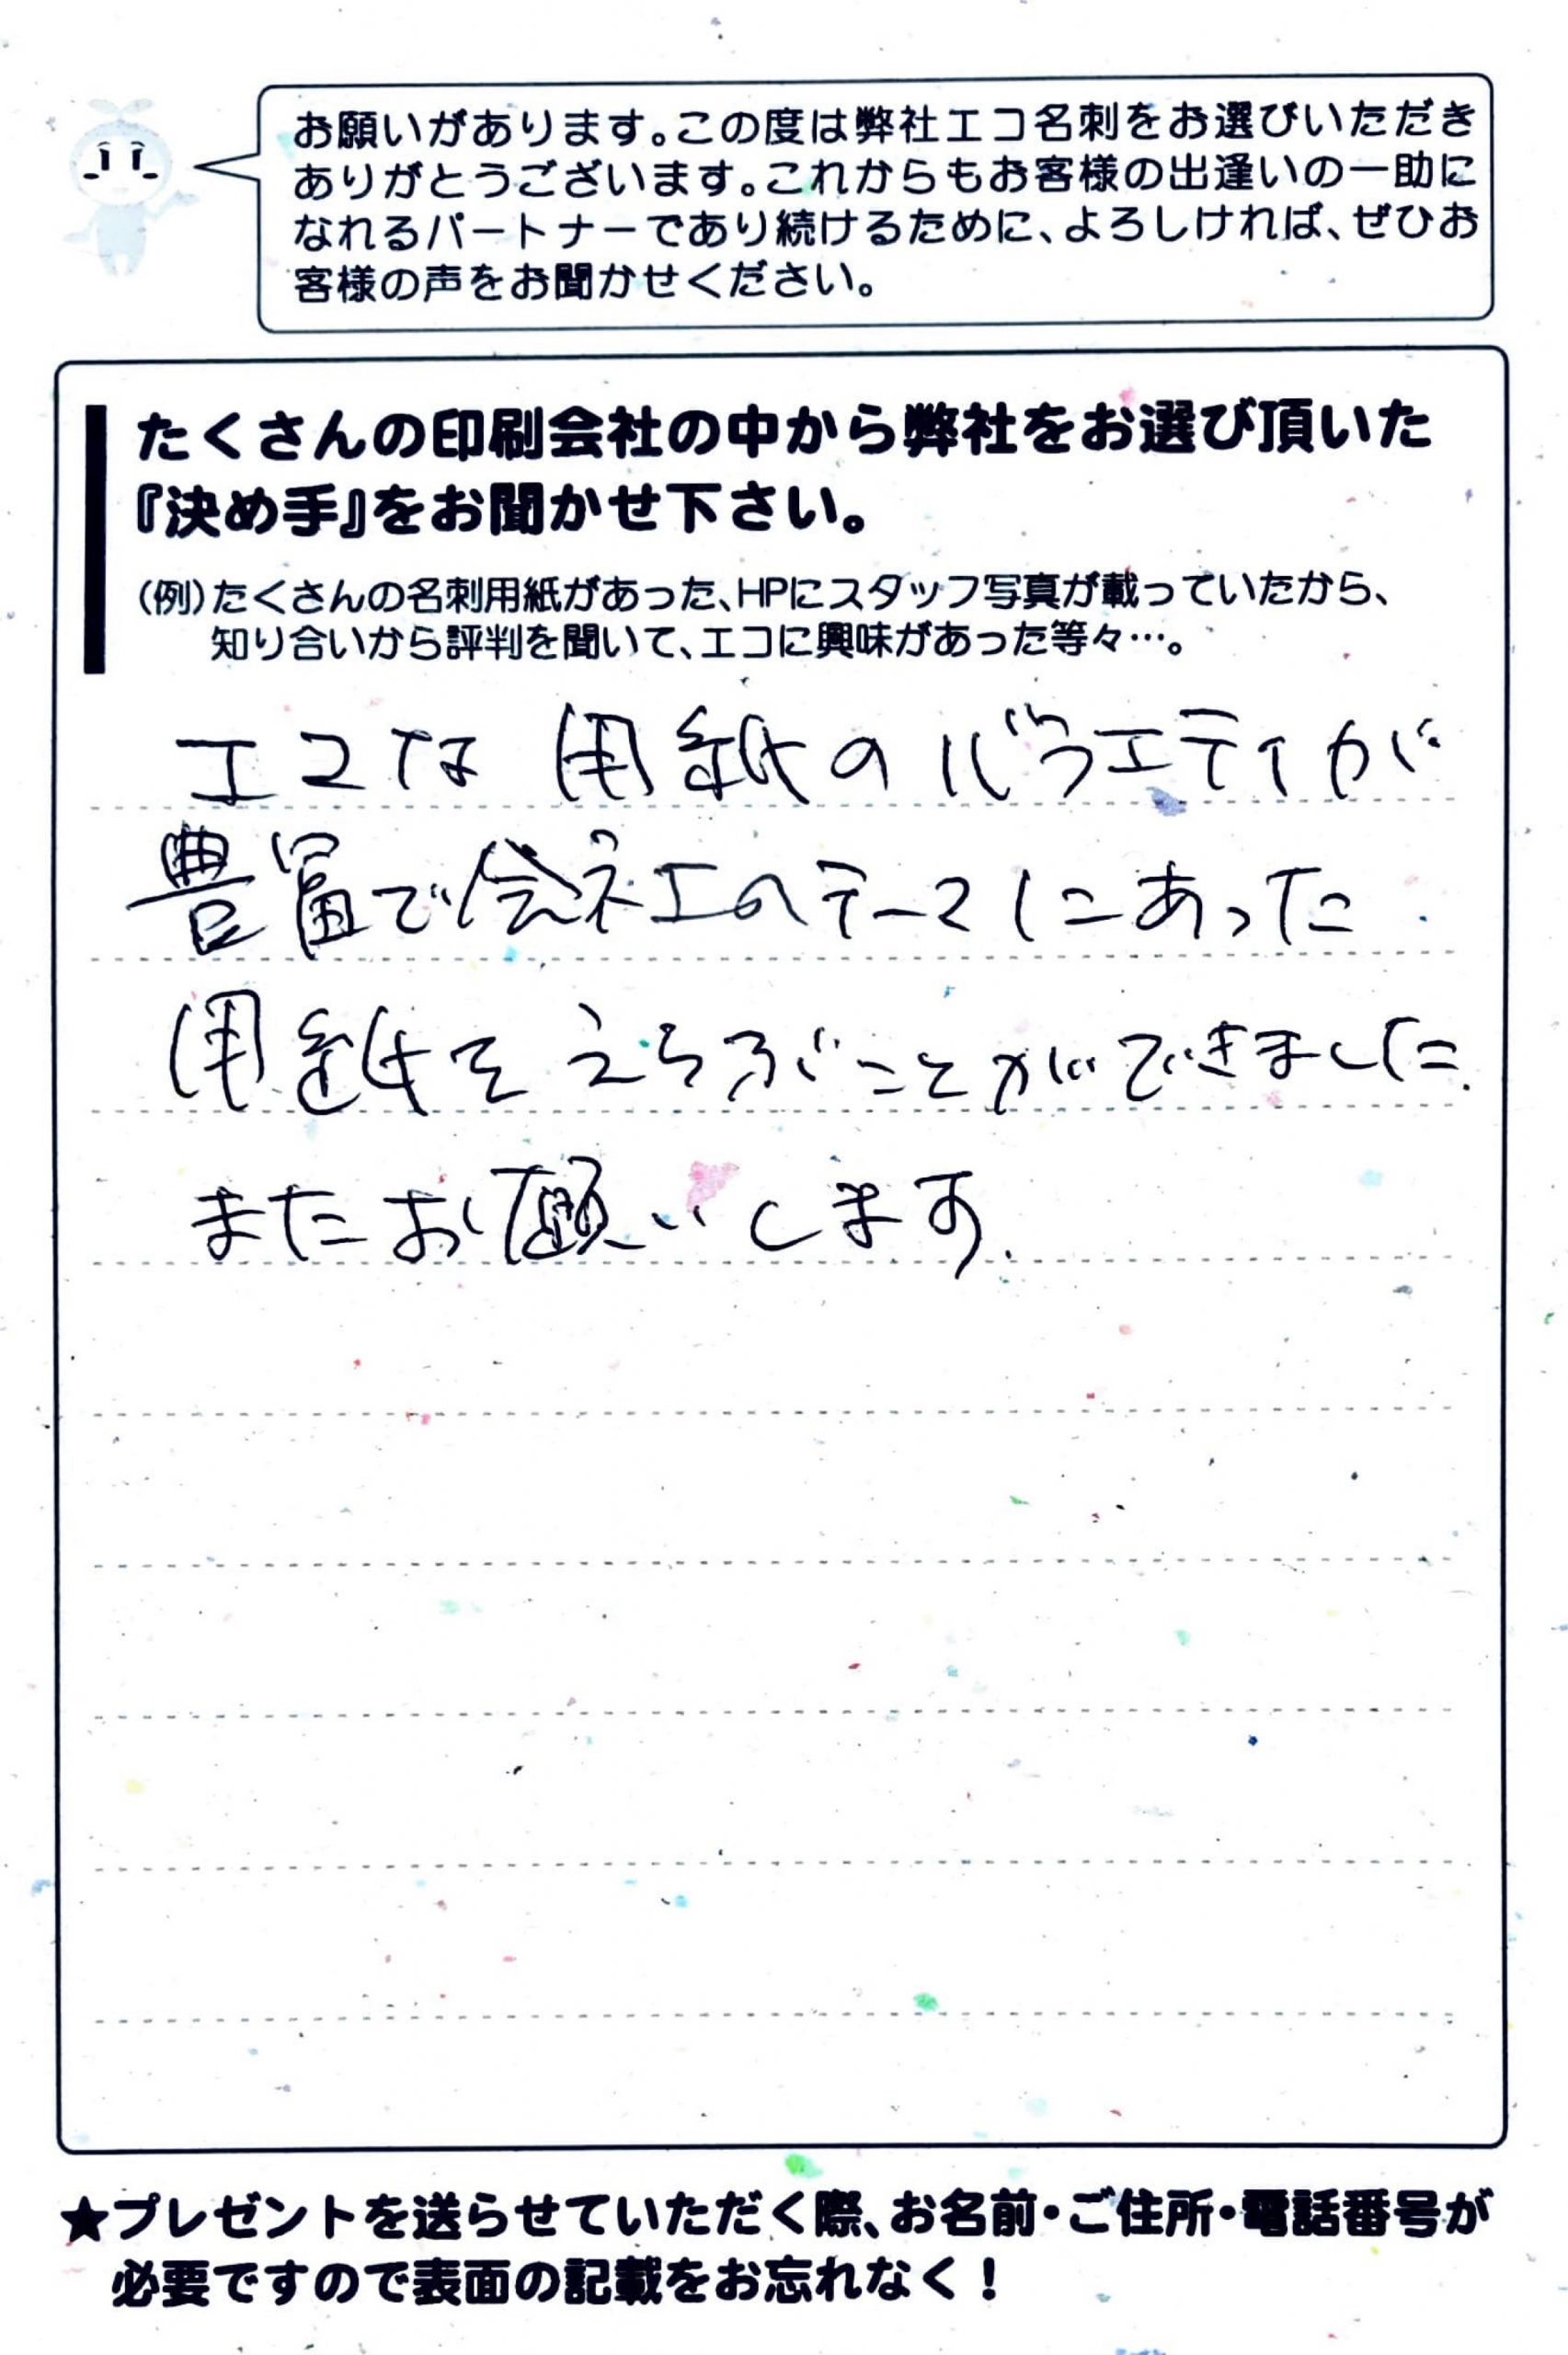 お願いがあります。この度は弊社エコ名刺をお選びいただき
ありがとうございます。これからもお客様の出逢いの一助に
なれるパートナーであり続けるために、よろしければ、ぜひお
客様の声をお聞かせください。
たくさんの印刷会社の中から弊社をお選び頂いた
『決め手』をお聞かせ下さい。
(例)たくさんの名刺用紙があった、HPにスタッフ写真が載っていたから、
知り合いから評判を聞いて、エコに興味があった等々…。
エコな用紙のバラエティが
豊富で会社のテーマにあった
用紙をえらぶことができました.
またお願いします.
★プレゼントを送らせていただく際、お名前・ご住所・電話番号が
必要ですので表面の記載をお忘れなく!